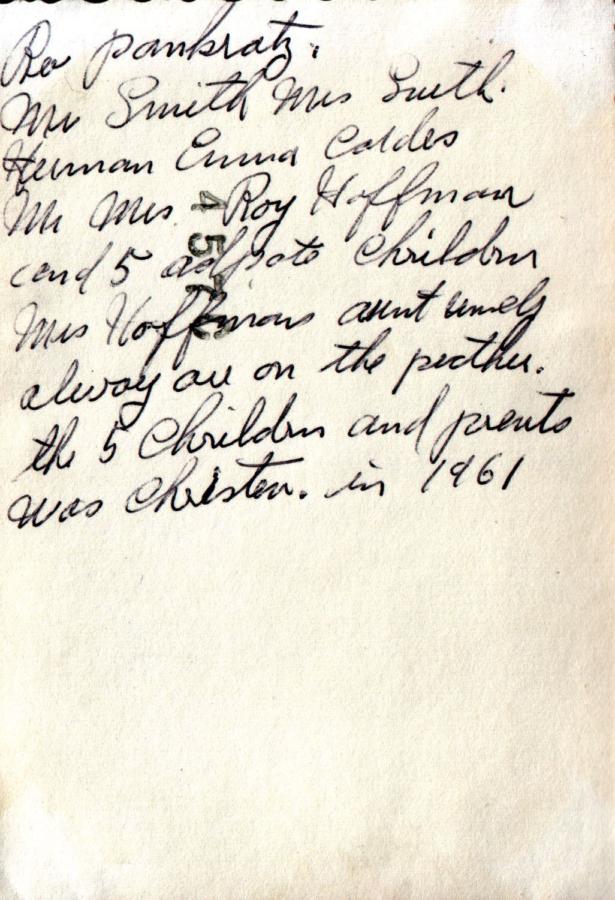 Rev Pankratz.
Mr Smith Mrs Smith.
Herman Emma Cordes
Mr Mrs Roy Hoffman
and 5 adpote Chrildrn
Mrs Hoffmans aunt
alway are on the
the 5 Chrildrn and prents
was Christen. in 1961
457